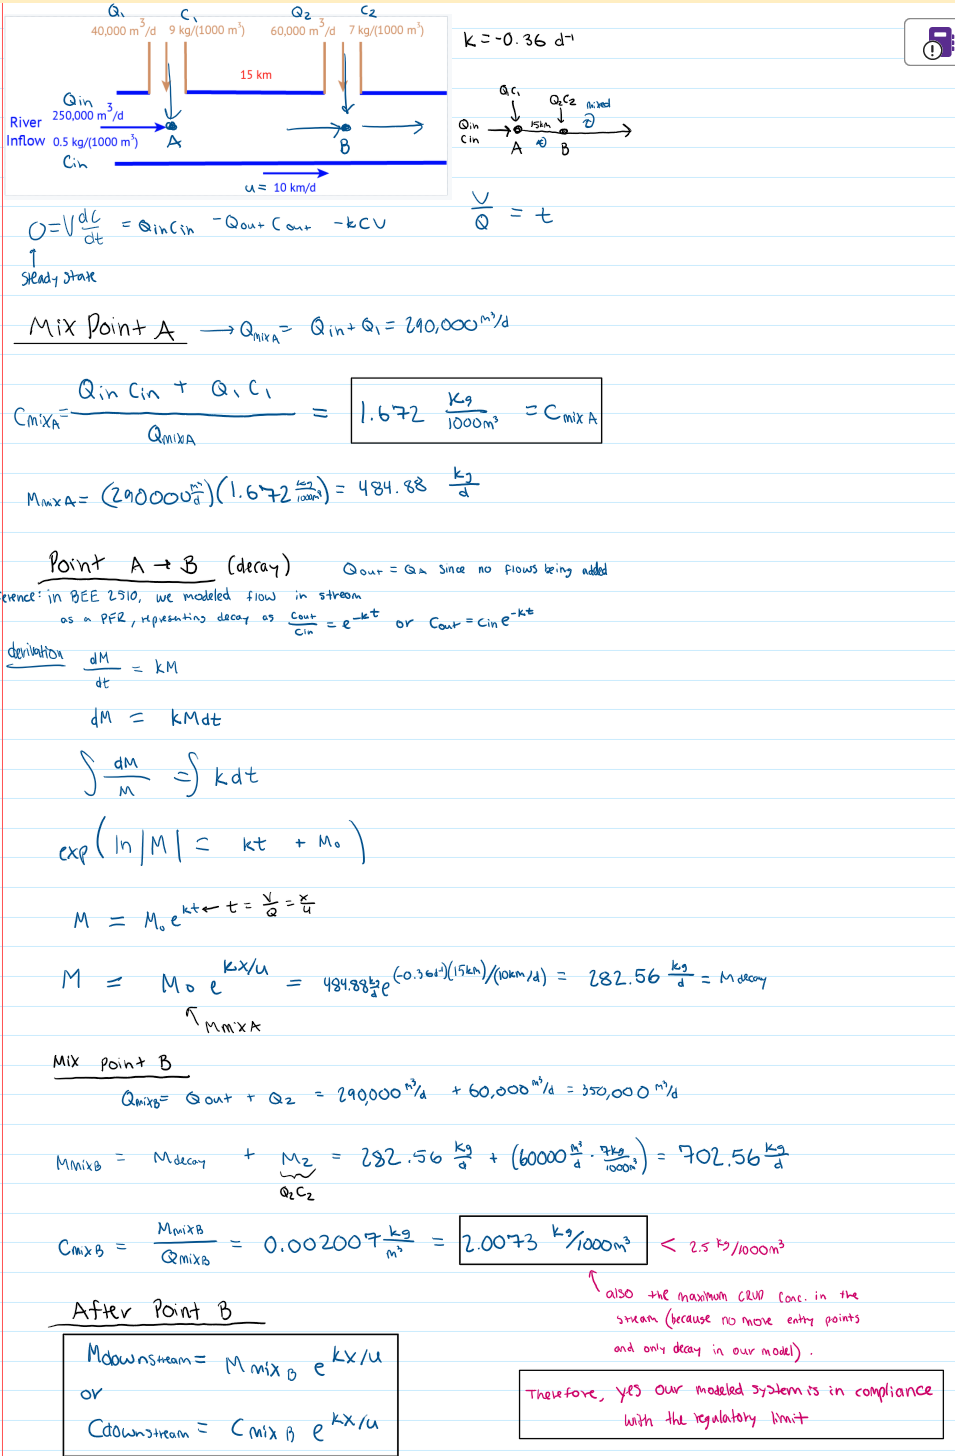 Q₁ C₁ Q₂ C₂
40,000 m³/d 9 kg/(1000 m³) 60,000 m³/d 7 kg/(1000 m³)
k = -0.36 d⁻¹
15 km
Qin
250,000 m³/d
River
Inflow 0.5 kg/(1000 m³)
Cin
A
B
u = 10 km/d
Q₁C₁
Q₂C₂ mixed
Qin
Cin
15km
A B
0 = V dc/dt = QinCin - Qout Cout - kCV
V/Q = t
↑
Steady State
Mix Point A → QmixA = Qin + Q₁ = 290,000 m³/d
CmixA = (Qin Cin + Q₁ C₁)/QmixA = 1.672 kg/1000m³ = CmixA
MmixA = (290000 m³/d)(1.672 kg/1000m³) = 484.88 kg/d
Point A → B (decay) Qout = QA since no flows being added
erence: in BEE 2510, we modeled flow in stream
as a PFR, representing decay as Cout/Cin = e^-kt or Cout = Cin e^-kt
derivation dM/dt = kM
dM = kMdt
∫ dM/M = ∫ kdt
exp( ln|M| = kt + M₀ )
M = M₀ e^kt ← t = V/Q = x/u
M = M₀ e^kx/u = 484.88 kg/d e^(-0.36d⁻¹)(15km)/(10km/d) = 282.56 kg/d = Mdecay
↑ MmixA
Mix Point B
QmixB = Qout + Q₂ = 290,000 m³/d + 60,000 m³/d = 350,000 m³/d
MmixB = Mdecay + M₂ = 282.56 kg/d + (60000 m³/d · 7kg/1000m³) = 702.56 kg/d
Q₂C₂
CmixB = MmixB/QmixB = 0.002007 kg/m³ = 2.0073 kg/1000m³ < 2.5 kg/1000m³
also the maximum CRUD conc. in the
stream (because no more entry points
and only decay in our model).
After Point B
Mdownstream = MmixB e^kx/u
or
Cdownstream = CmixB e^kx/u
Therefore, yes our modeled system is in compliance
with the regulatory limit